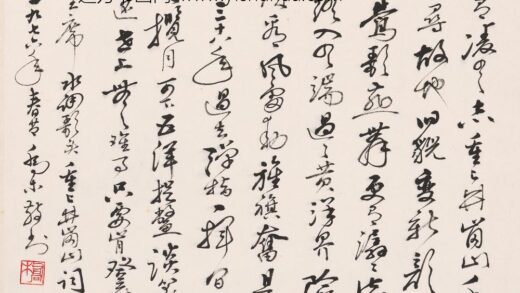 有凌云志重上井岗山千
寻故地旧貌变新颜
莺歌燕舞更有潺潺
路入云端过了黄洋界险
看风雷动旌旗奋是
三十八年过去弹指一挥间
揽月可下五洋捉鳖谈笑
还世上无难事只要肯登攀
主席水调歌头重上井岗山词
一九七六年春